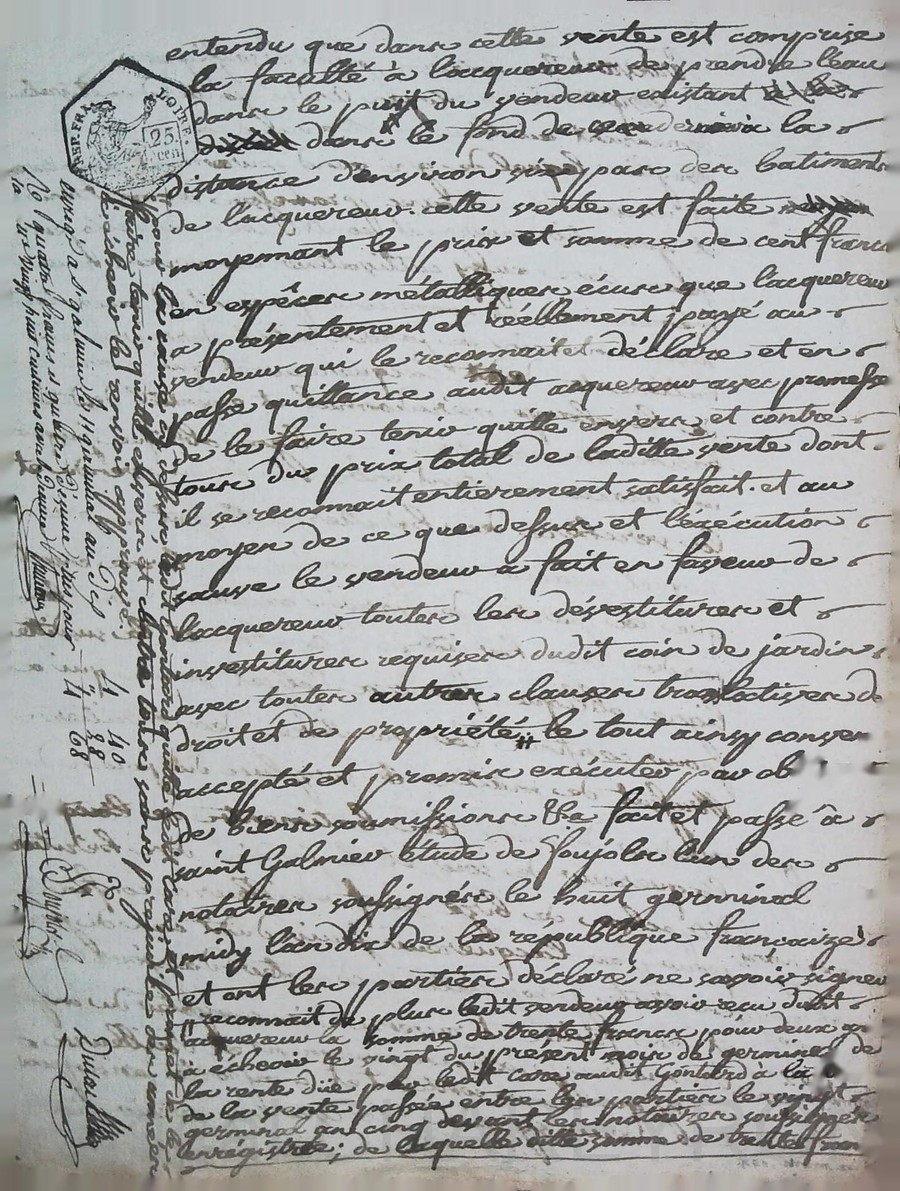 entendu que dans cette vente est comprise
la faculté à lacquereur de prendre leau
dans le puit du vendeur existant
dans le fond de
distance denviron pas des batiments
de lacquereur. cette vente est faite
moyennant le prix et somme de cent francs
en espêces métalliques écus que lacquereur
a présentement et réellement payé au
vendeur qui le reconnait et déclare et en
passe quittance audit acquereur avec promesse
de le faire tenir quitte envers et contre
tous du prix total de laditte vente dont
il se reconnait entierement satisfait. et au
moyen de ce que dessus et lexécution
sauve le vendeur a fait en faveur de
lacquereur toutes les dévestitures et
investitures requises dudit coin de jardin
avec toutes autres clauses translatives de
droit et de propriété, le tout ainsy conven
accepté et promis exécuter par ob
de biens soumissions &a fait et passé à
saint Galmier étude de Soujols lun des
notaires soussignés le huit germinal
midy lan dix de la republique françaize
et ont les parties déclaré ne savoir signer
reconnait de plus ledit vendeur avoir reçu dudit
acquereur la somme de trente francs pour deux an
à échoir le vingt du présent mois de germinal de
la rente düe par ledit care audit Gontard à la
de la vente passée entre les parties le vingt
germinal an cinq devant les notaires soussignés
enrégistrée; de laquelle ditte somme de trente fran
pour la cause cy dessus ledit vendeur quitte ledit care et promet de le
faire tenir quitte envers et contre tous sans préjudice des années
à échoir le renvoi approuvé.
REP. FRA
LOIRE.
25
cen
à st galmier le 11 germinal an Dix
Rç quatre francs quarante centimes pour
la vingt huit centimes
4 40
" 28
4 68